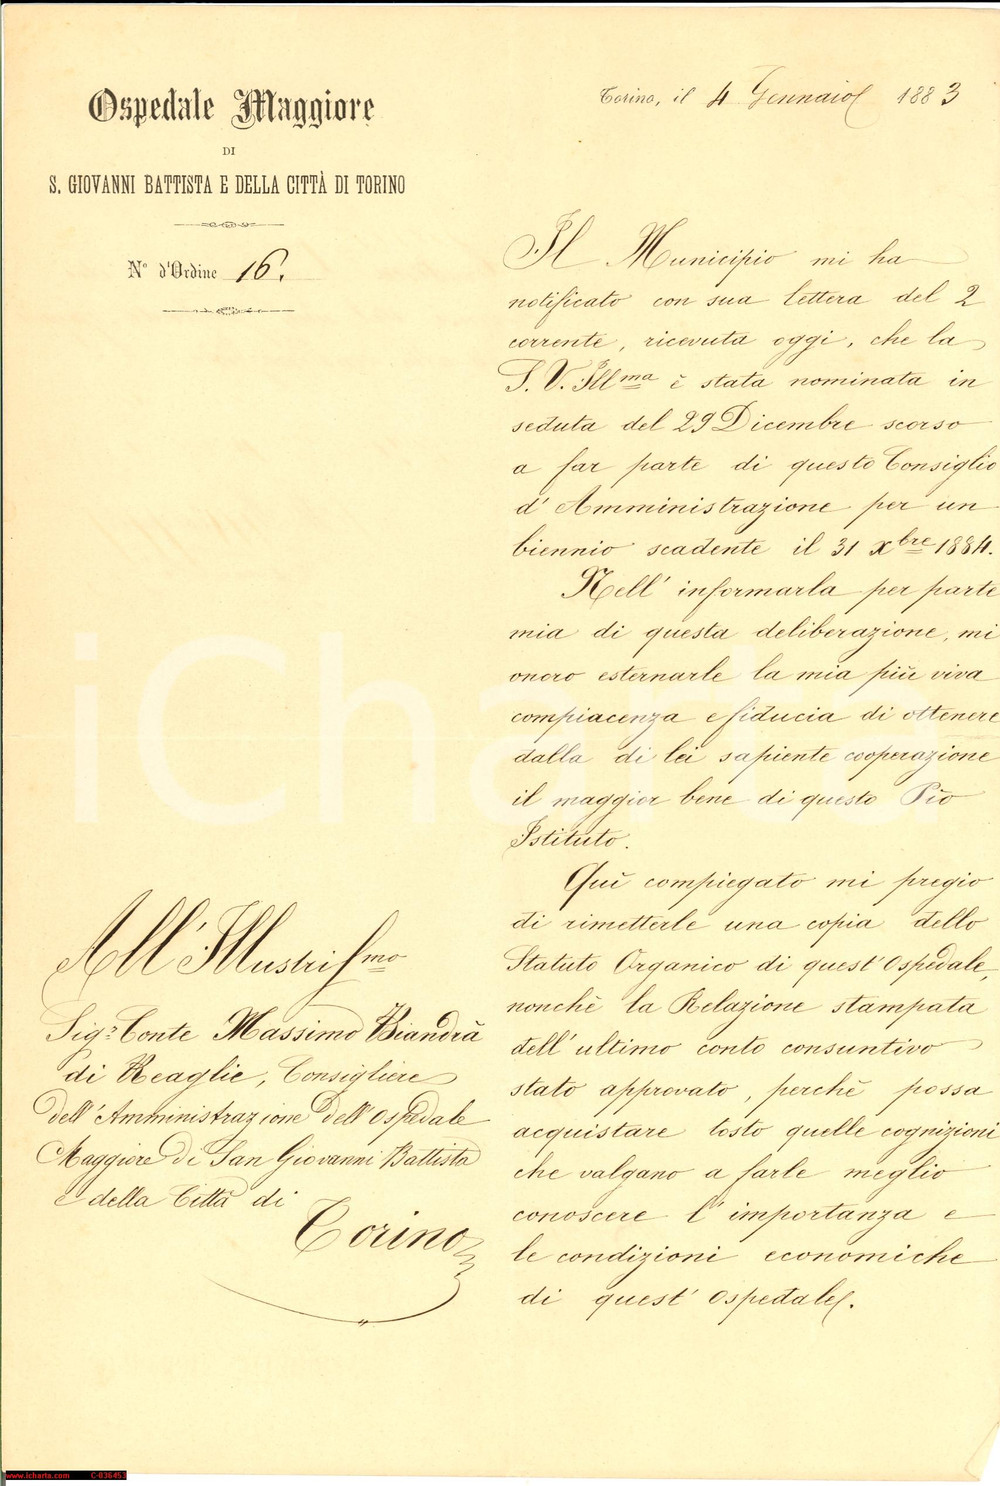 Ospedale Maggiore
DI
S. GIOVANNI BATTISTA E DELLA CITTÀ DI TORINO
N.º d'Ordine 16.
Torino, il 4 Gennaio 1883
Il Municipio mi ha
notificato con sua lettera del 2
corrente, ricevuta oggi, che la
S. V. Ill.ma è stata nominata in
seduta del 29 Dicembre scorso
a far parte di questo Consiglio
d'Amministrazione per un
biennio scadente il 31 Xbre 1884.
Nell'informarla per parte
mia di questa deliberazione, mi
onoro esternarle la mia più viva
compiacenza e fiducia di ottenere
dalla di lei sapiente cooperazione
il maggior bene di questo Pio
Istituto.
Quì compiegato mi pregio
di rimetterle una copia dello
Statuto Organico di quest'Ospedale,
nonchè la Relazione stampata
dell'ultimo conto consuntivo
stato approvato, perchè possa
acquistare tosto quelle cognizioni
che valgano a farle meglio
conoscere l'importanza e
le condizioni economiche
di quest'Ospedale.
All'Illustrissmo
Sigr Conte Massimo Biandrà
di Reaglie, Consigliere
dell'Amministrazione dell'Ospedale
Maggiore di San Giovanni Battista
e della Città di
Torino
iCharta
www.icharta.com C-036453